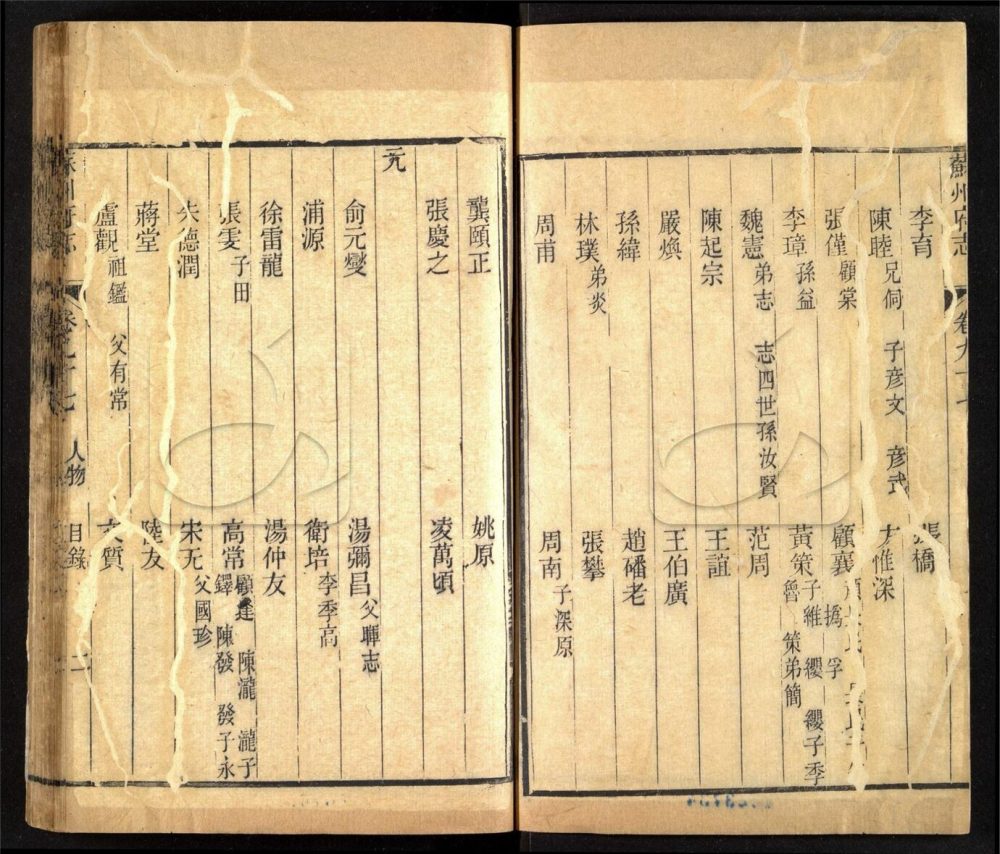 蘇州府志 卷九十七
李育 張橋
陳睦 兄侗 子彥文 彥武 方惟深
張僅 顧棠 顧襄
李璋 孫益 黃策 子維 纓 纓子季魯 策弟簡
魏憲 弟志 志四世孫汝賢 范周
陳起宗 王誼
嚴煥 王伯廣
孫緯 趙磻老
林璞 弟炎 張攀
周甫 周南 子深原
龔頤正 姚原
張慶之 凌萬頃
元
俞元燮 湯彌昌 父暉志
浦源 衛培 李季高
徐雷龍 湯仲友
張雯 子田 高常 顧逢 陳瀧 瀧子鐸 陳發 發子永
朱德潤 宋无 父國珍
蔣堂 陸友
盧觀 祖鑑 父有常 文質
蘇州府志 卷九十七 人物 目錄 二